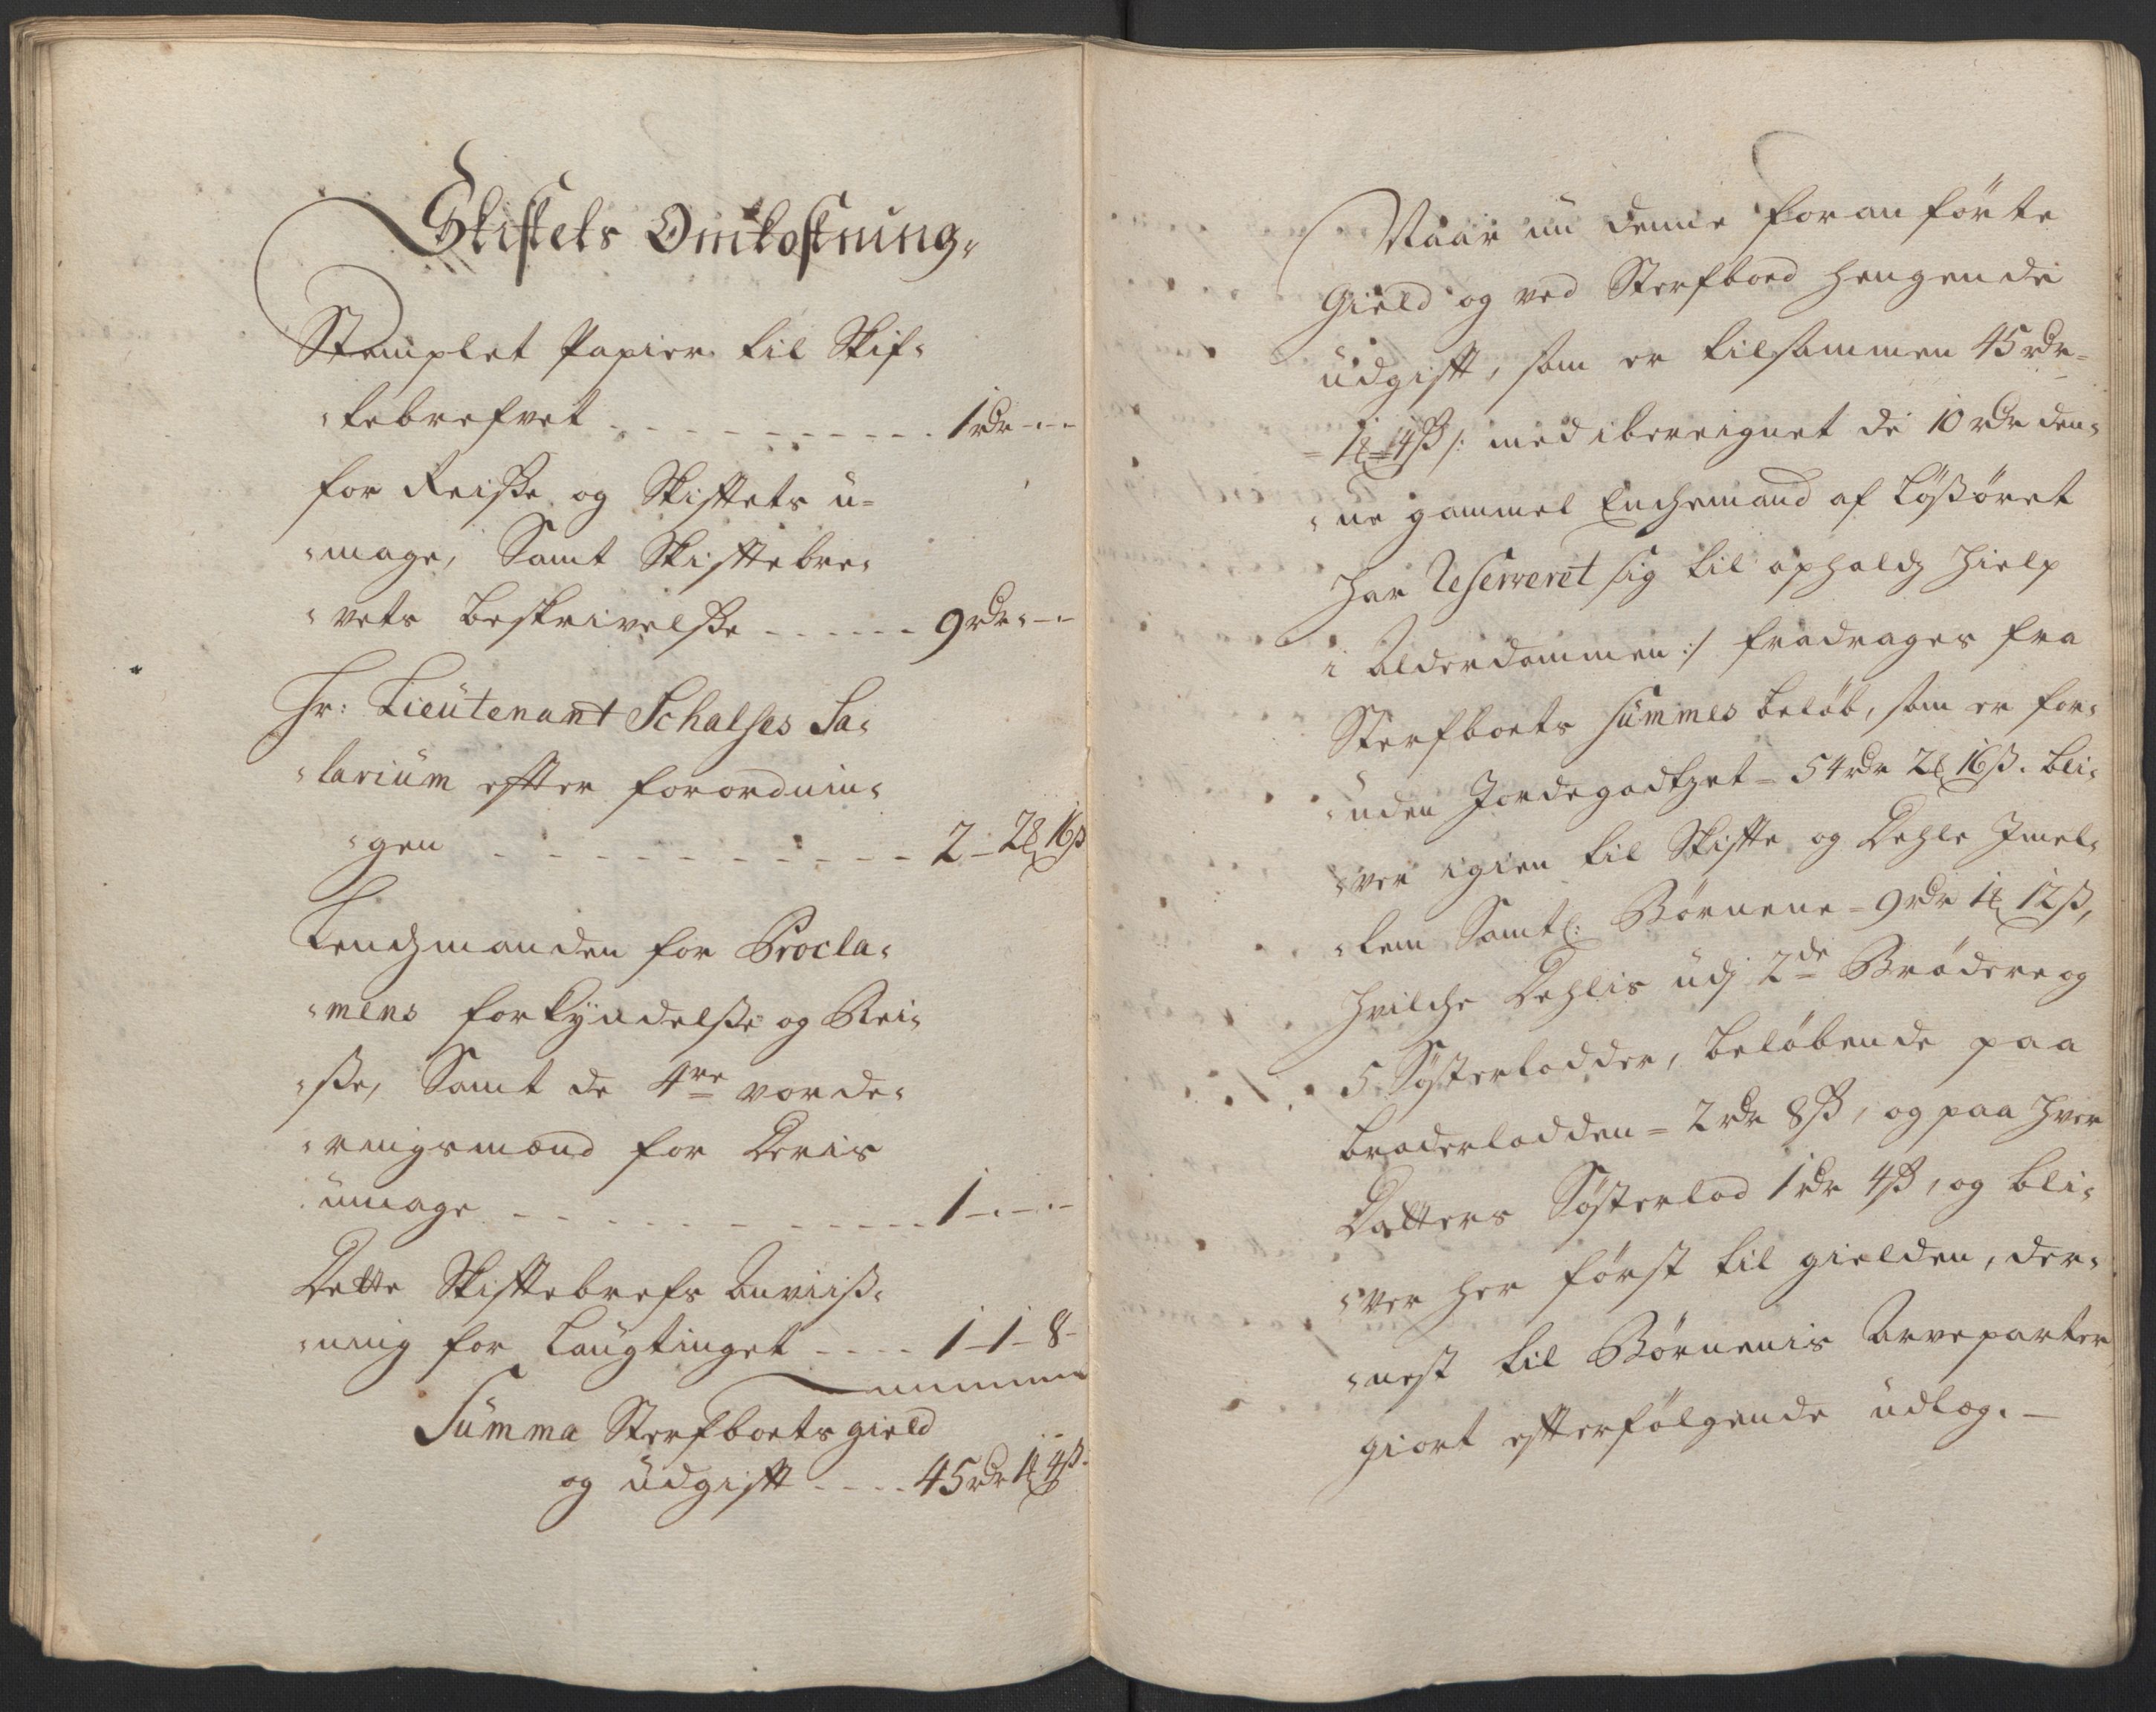 Skiftets Omkostning,
Stemplet Papier til Skif-
-tebrefvet - - - 1 rdr - . -
for Reiße og Skiftets u-
-mage, Samt Skiftebre-
-vets beskrivelße - - - 9 rdr - . -
Hr: Lieütenant Schalses Sa-
-lariüm efter forordnin-
-gen - - - 2 - 2 ℔ 16 ß
Lendsmanden for Procla-
-mens forkÿndelße og Rei-
-ße, Samt de 4re vorde-
-ringsmænd for Deris
ümage - - - 1 - . - . -
Dette Skiftebrefs Anviiß-
-ning for Laugtinget - - - 1 - 1 - 8 -
Sümma Sterfboets gield
og üdgift - - - 45 rdr 1 ℔ 4 ß.
Naar nü denne foranførte
Gield og ved Sterfboed hengende
üdgift, som er tilsammen 45 rdr =
= 1 ℔ = 4 ß /: med ibereignet de 10 rdr den-
-ne gammel Enchemand af Lößøret
har Reserveret sig til ophalds hielp
i Alderdommen :/ fradrages fra
Sterfboets sümmes beløb, som er for-
-uden Jordegodtzet = 54 rdr 2 ℔ 16 ß. bli-
-ver igien til Skifte og Dehle Imel-
-lem Samtl: Børnene = 9 rdr 1 ℔ 12 ß,
hvilche Dehlis üdj 2de Brødere og
5 Søsterlodder, beløbende paa
broderlodden = 2 rdr 8 ß, og paa hver
Datters Søsterlod 1 rdr 4 ß, og bli-
-ver her først til gielden, der-
-nest til Børnenis Arveparter
giort efterfølgende üdlæg. -